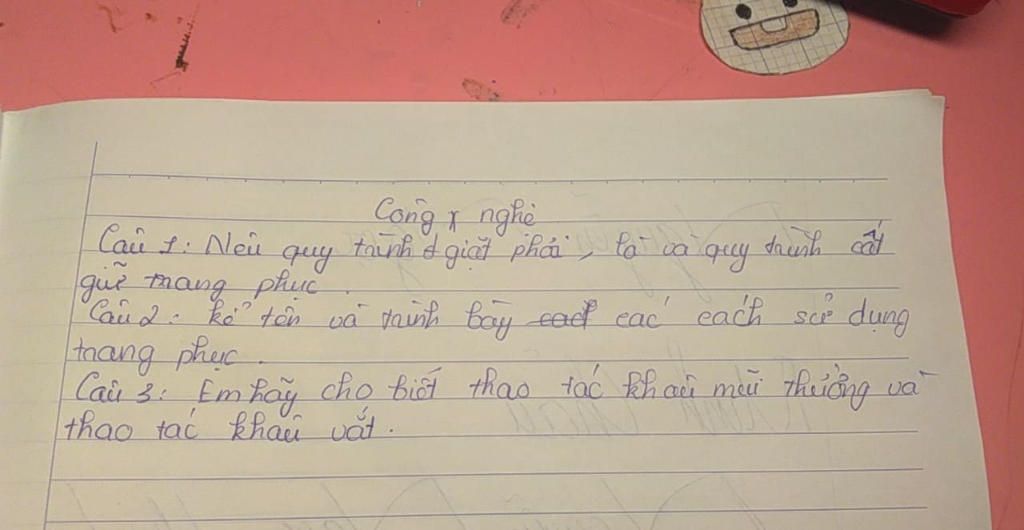 Công nghệ
Câu 1: Nêu quy trình giặt phơi, là và quy trình cất
giữ trang phục.
Câu 2: kể tên và trình bày các cách sử dụng
trang phục.
Câu 3: Em hãy cho biết thao tác khâu mũi thường và
thao tác khâu vắt.